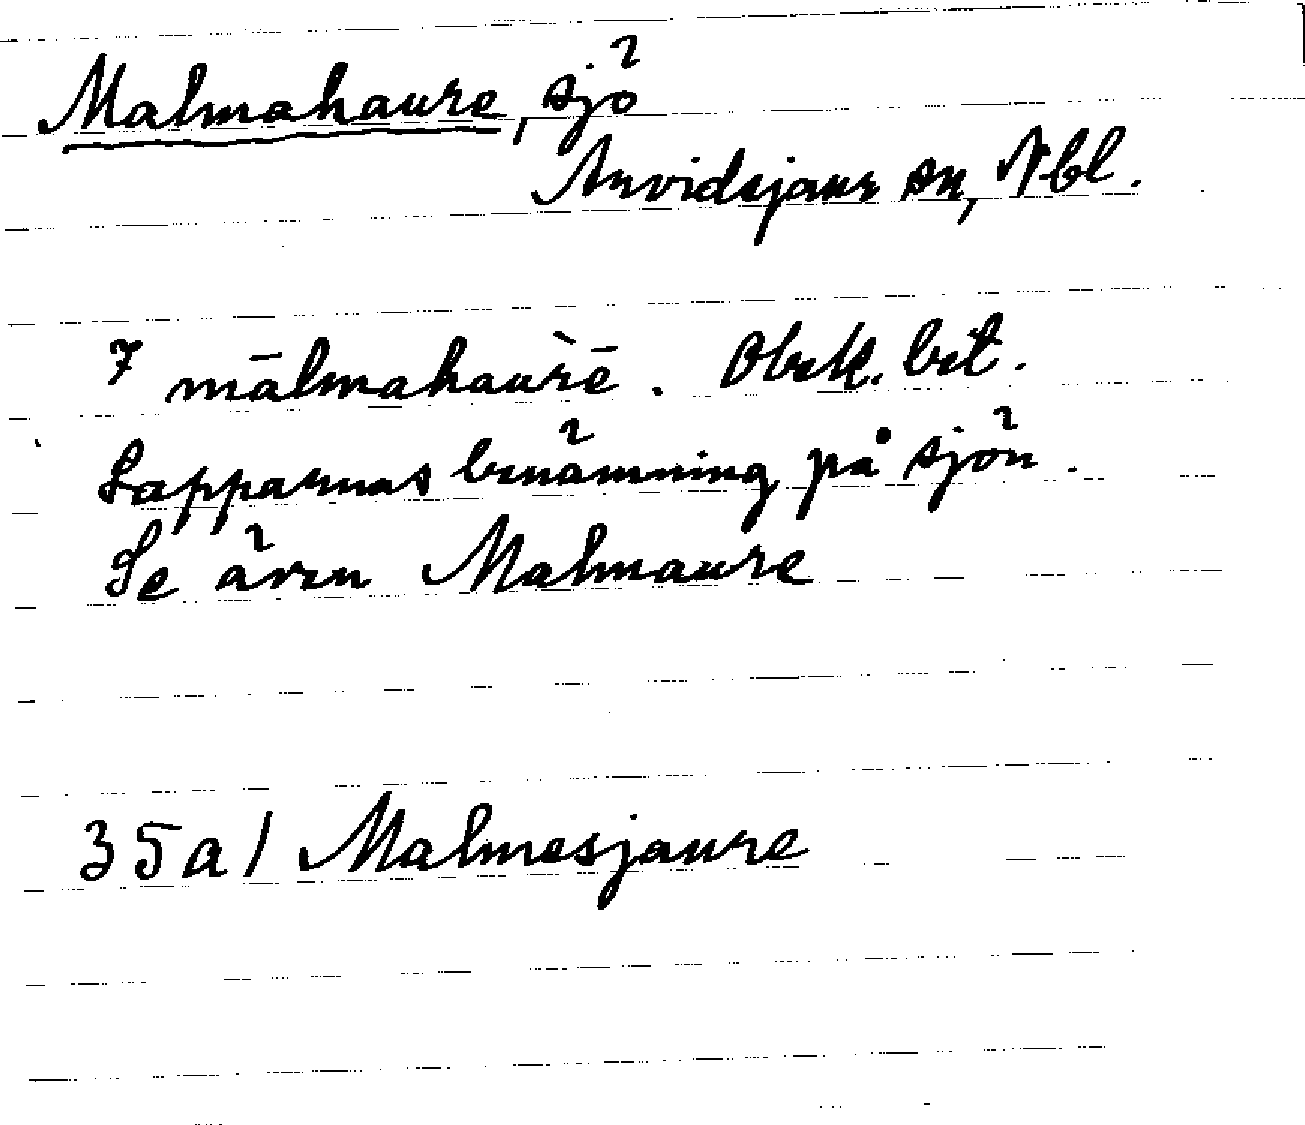 Malmahaure, sjö
Arvidsjaur sn, Nbl.
7 mālmahaùrē. Obek. bet.
Lapparnas benämning på sjön.
Se även Malmaure
35a/ Malmesjaure